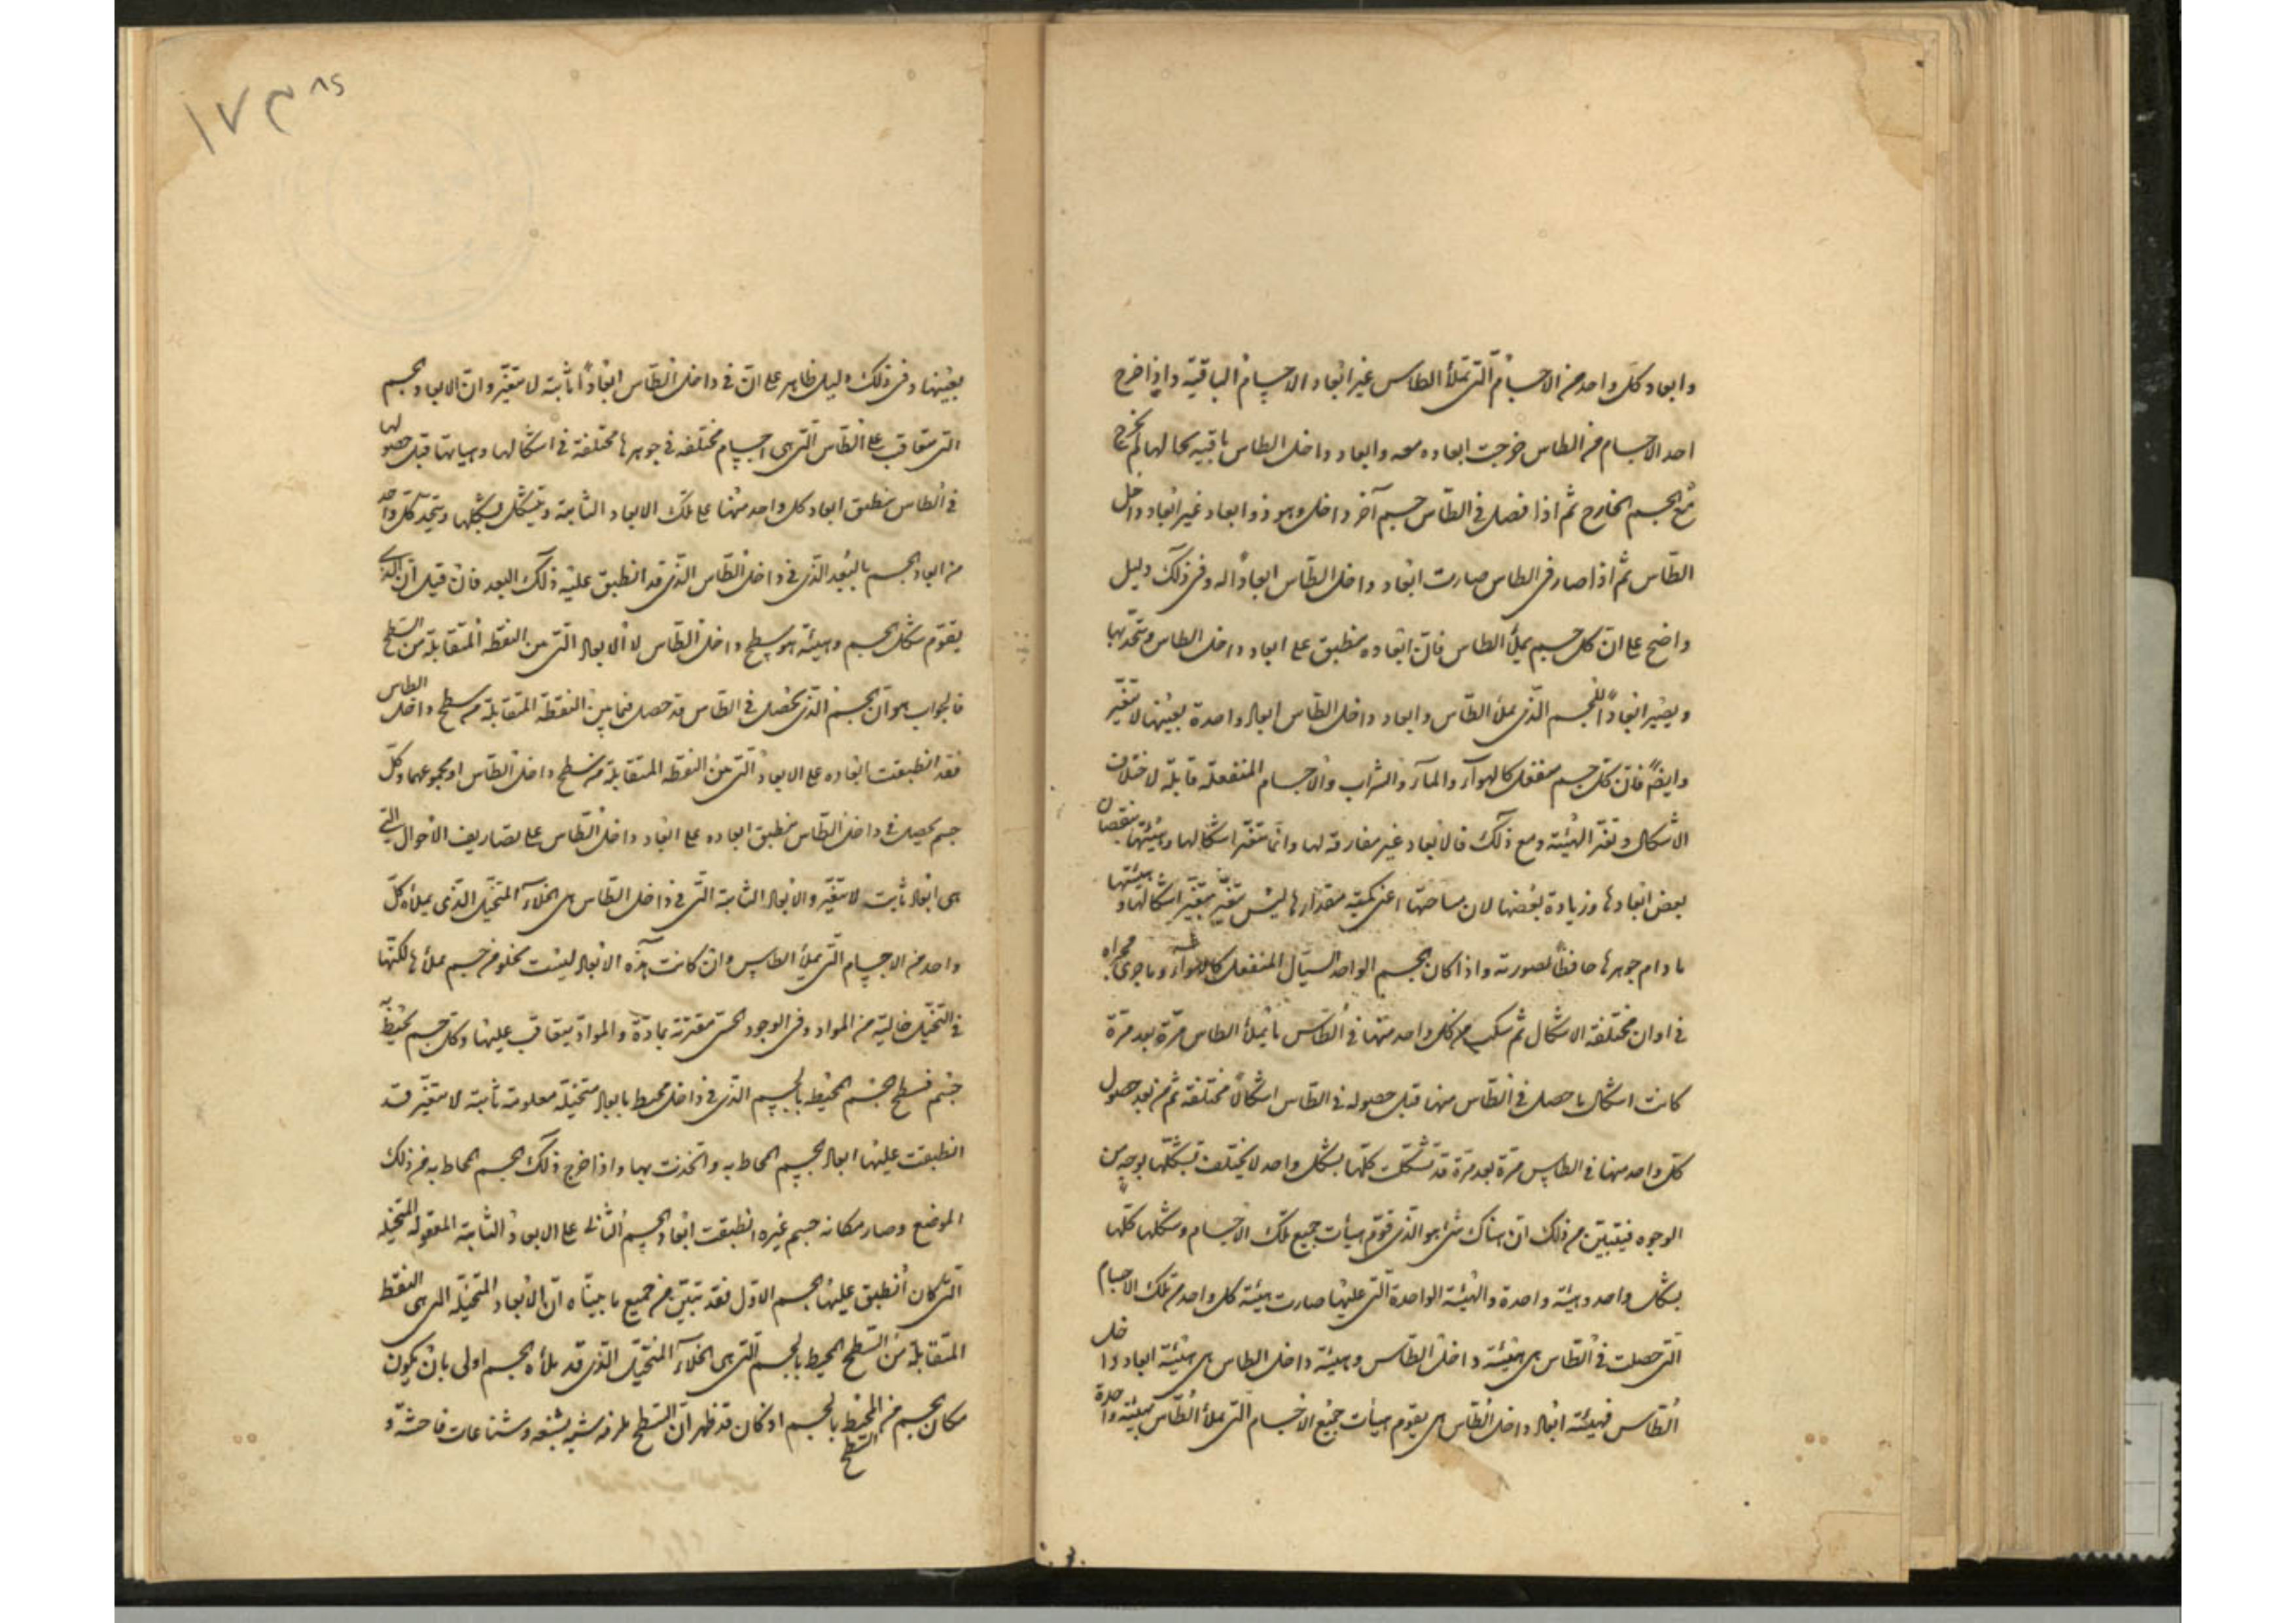 وابعاد كل واحد من الاجسام التي تملأ الطاس غير ابعاد الاجسام الباقية واذا خرج
احد الاجسام من الطاس خرجت ابعاده معه وابعاد داخل الطاس باقية بحالها لم تخرج
مع الجسم الخارج ثم اذا فصل في الطاس جسم آخر داخل وهو ذو ابعاد غير ابعاد داخل
الطاس ثم اذا صار في الطاس صارت ابعاد داخل الطاس ابعاداً له وفي ذلك دليل
واضح على ان كل جسم يملأ الطاس فان ابعاده منطبق على ابعاد داخل الطاس وتتحد بها
ويصير ابعاداً للجسم الذي يملأ الطاس وابعاد داخل الطاس ابعاد واحدة بعينها لا تتغير
وايضاً فان كل جسم منفعل كالهواء والماء والشراب والاجسام المنفعلة قابلة لاختلاف
الاشكال وتغير الهيئة ومع ذلك فالابعاد غير مفارقة لها وانما تتغير اشكالها وهيئتها بنقصان
بعض ابعادها وزيادة بعضها لان مساحتها اعني كمية مقدارها ليس تتغير بتغير اشكالها وهيئتها
ما دام جوهرها حافظاً لصورته واذا كان الجسم الواحد السيال المنفعل كالماء والهواء وما جرى مجراه
في اوان مختلفة الاشكال ثم سكب من كل واحد منها في الطاس ما يملأ الطاس مرة بعد مرة
كانت اشكال ما حصل في الطاس منها قبل حصوله في الطاس اشكالاً مختلفة ثم من بعد حصول
كل واحد منها في الطاس مرة بعد مرة قد تشكلت كلها بشكل واحد لا يختلف تشكلها بوجه من
الوجوه فيتبين من ذلك ان هناك شئ هو الذي قوم هيأت جميع تلك الاجسام وشكلها كلها
بشكل واحد وهيئة واحدة والهيئة الواحدة التي عليها صارت هيئة كل واحد من تلك الاجسام
التي حصلت في الطاس هي هيئة داخل الطاس وهيئة داخل الطاس هي هيئة ابعاد داخل
الطاس فهيئة ابعاد داخل الطاس هي يقوم هيأت جميع الاجسام التي تملأ الطاس بهيئة واحدة
١٧٣
بعينها وفي ذلك دليل ظاهر على ان في داخل الطاس ابعاداً ثابتة لا تتغير وان الابعاد الجسم
التي تتعاقب على الطاس التي هي اجسام مختلفة في جوهرها مختلفة في اشكالها وهيأتها قبل حصولها
في الطاس ينطبق ابعاد كل واحد منها على تلك الابعاد الثابتة ويتشكل بشكلها ويتحد كل واحد
من ابعاد الجسم بالبعد الذي في داخل الطاس الذي قد انطبق عليه ذلك البعد فان قيل ان الذي
يقوم شكل الجسم وهيئته هو سطح داخل الطاس لا الابعاد التي بين النقط المتقابلة من السطح
فالجواب هو ان الجسم الذي يحصل في الطاس قد حصل فيما بين النقط المتقابلة من سطح داخل الطاس
فقد انطبقت ابعاده على الابعاد التي بين النقط المتقابلة من سطح داخل الطاس او مجموعهما وكل
جسم يحصل في داخل الطاس ينطبق ابعاده على ابعاد داخل الطاس على تصاريف الاحوال التي
هي ابعاد ثابت لا تتغير والابعاد الثابتة التي في داخل الطاس هي الخلاء المتخيل الذي يملأه كل
واحد من الاجسام التي يملأ الطاس وان كانت هذه الابعاد ليست تخلو من جسم يملأها لكنها
في التخيل خالية من المواد وفي الوجود الحسي مقترنة بمادة والمواد يتعاقب عليها وكل جسم يحيط به
جسم فسطح الجسم المحيط بالجسم الذي في داخله محيط بابعاد متخيلة معلومة ثابتة لا تتغير قد
انطبقت عليها ابعاد الجسم المحاط به واتحدت بها واذا خرج ذلك الجسم المحاط به من ذلك
الموضع وصار مكانه جسم غيره انطبقت ابعاد الجسم الثاني على الابعاد الثابتة المعقولة المتخيلة
التي كان انطبق عليها الجسم الاول فقد تبين من جميع ما بيناه ان الابعاد المتخيلة التي هي النقط
المتقابلة من السطح المحيط بالجسم التي هي الخلاء المتخيل الذي قد ملأه الجسم اولى بان يكون
مكان الجسم من السطح المحيط بالجسم اذ كان قد ظهر ان السطح يلزمه بشعة وشناعات فاحشة و